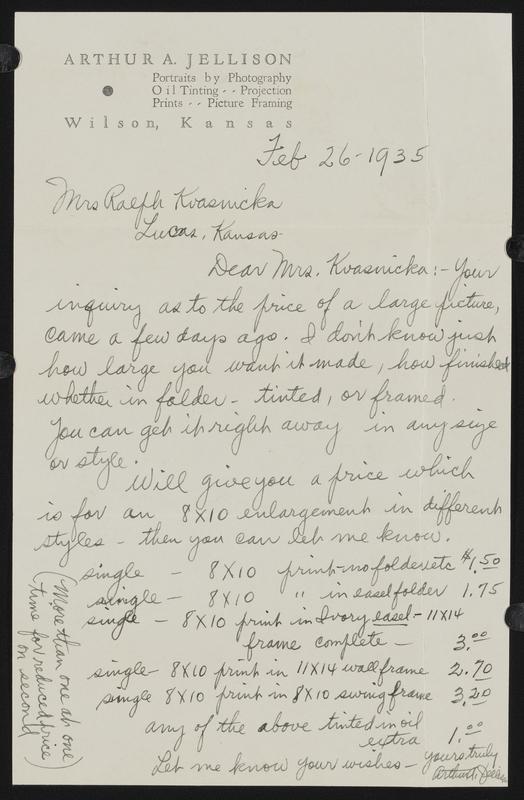 ARTHUR A. JELLISON
Portraits by Photography
Oil Tinting - - Projection
Prints - - Picture Framing
Wilson, Kansas
Feb 26-1935
Mrs Ralph Kvasnicka
Lucas, Kansas-
Dear Mrs. Kvasnicka:- Your
inquiry as to the price of a large picture,
came a few days ago. I don't know just
how large you want it made, how finished
whether in folder - tinted, or framed.
You can get it right away in any size
or style.
Will give you a price which
is for an 8X10 enlargement in different
styles - then you can let me know.
single - 8X10 print-no folder etc $1.50
single - 8X10 " in easel folder 1.75
single - 8X10 print in Ivory easel - 11X14
frame complete - 3.00
single - 8X10 print in 11X14 wall frame 2.70
single 8X10 print in 8X10 swing frame 3.20
any of the above tinted in oil
extra 1.00
Let me know your wishes - yours truly
Arthur A. Jellison
(More than one at one
time for reduced price)
on second